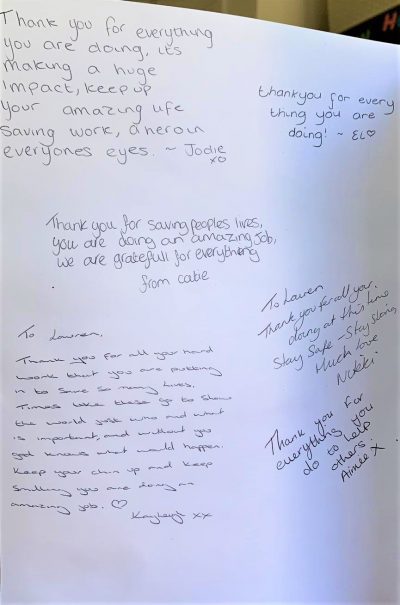 Thank you for everything
you are doing, its
making a huge
impact, keep up
your amazing life
saving work, a hero in
everyones eyes. ~ Jodie
xo
thankyou for every
thing you are
doing! ~ EL♡
Thank you for saving peoples lives,
you are doing an amazing job,
we are gratefull for everything
from catie
To Lauren,
Thank you for all your
doing at this time
Stay Safe - Stay Strong
Much love
Nikki.
To Lauren,
Thank you for all your hard
work that you are putting
in to save so many lives.
Times like these go to show
the world just who and what
is important, and without you
god knows what would happen.
Keep your chin up and keep
smiling you are doing an
amazing job. ♡
Kayleigh xx
Thank you for
everything you
do to help
others.
Aimee X
H